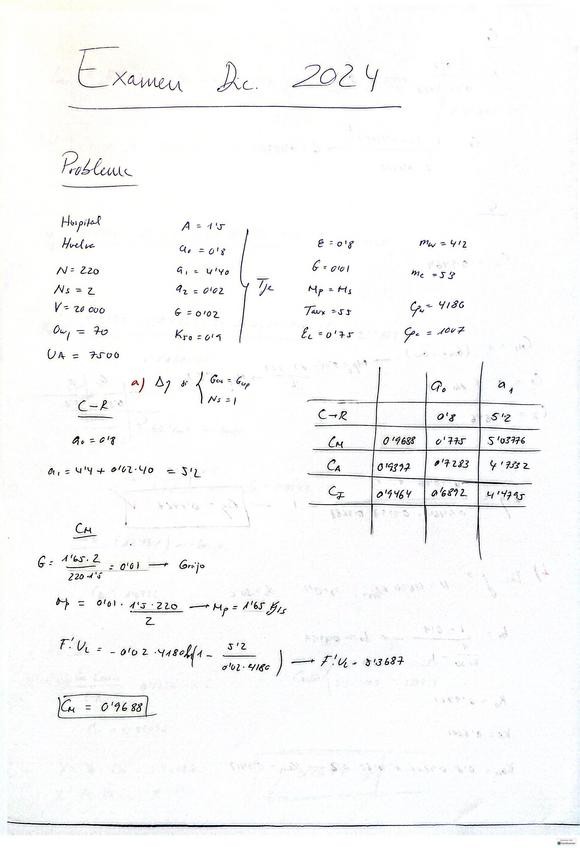 Examen Dic. 2024
Problema
Hospital
Huelva
N = 220
Ns = 2
V = 20 000
Ow1 = 70
UA = 7500
A = 1'5
a0 = 0'8
a1 = 4'40
a2 = 0'02
G = 0'02
K50 = 0'9
Tje
E = 0'8
G = 0'01
Mp = Ms
Taux = 55
EL = 0'75
mw = 4'2
mc = 5'3
Cpw = 4186
Cpc = 1007
a) Δη si { Gcu = Gup
Ns = 1
C-R
a0 = 0'8
a1 = 4'4 + 0'02·40 = 5'2
a0 a1
C-R 0'8 5'2
CM 0'9688 0'775 5'03776
CA 0'9397 0'7283 4'7332
CI 0'9464 0'6892 4'4795
CM
G = 1'65·2 / 220·1'5 = 0'01 → Grupo
Mp = 0'01 · 1'5·220 / 2 → Mp = 1'65 Kg/s
F'UL = -0'02·4180 ln(1 - 5'2 / 0'02·4180) → F'UL = 5'3687
CM = 0'9688